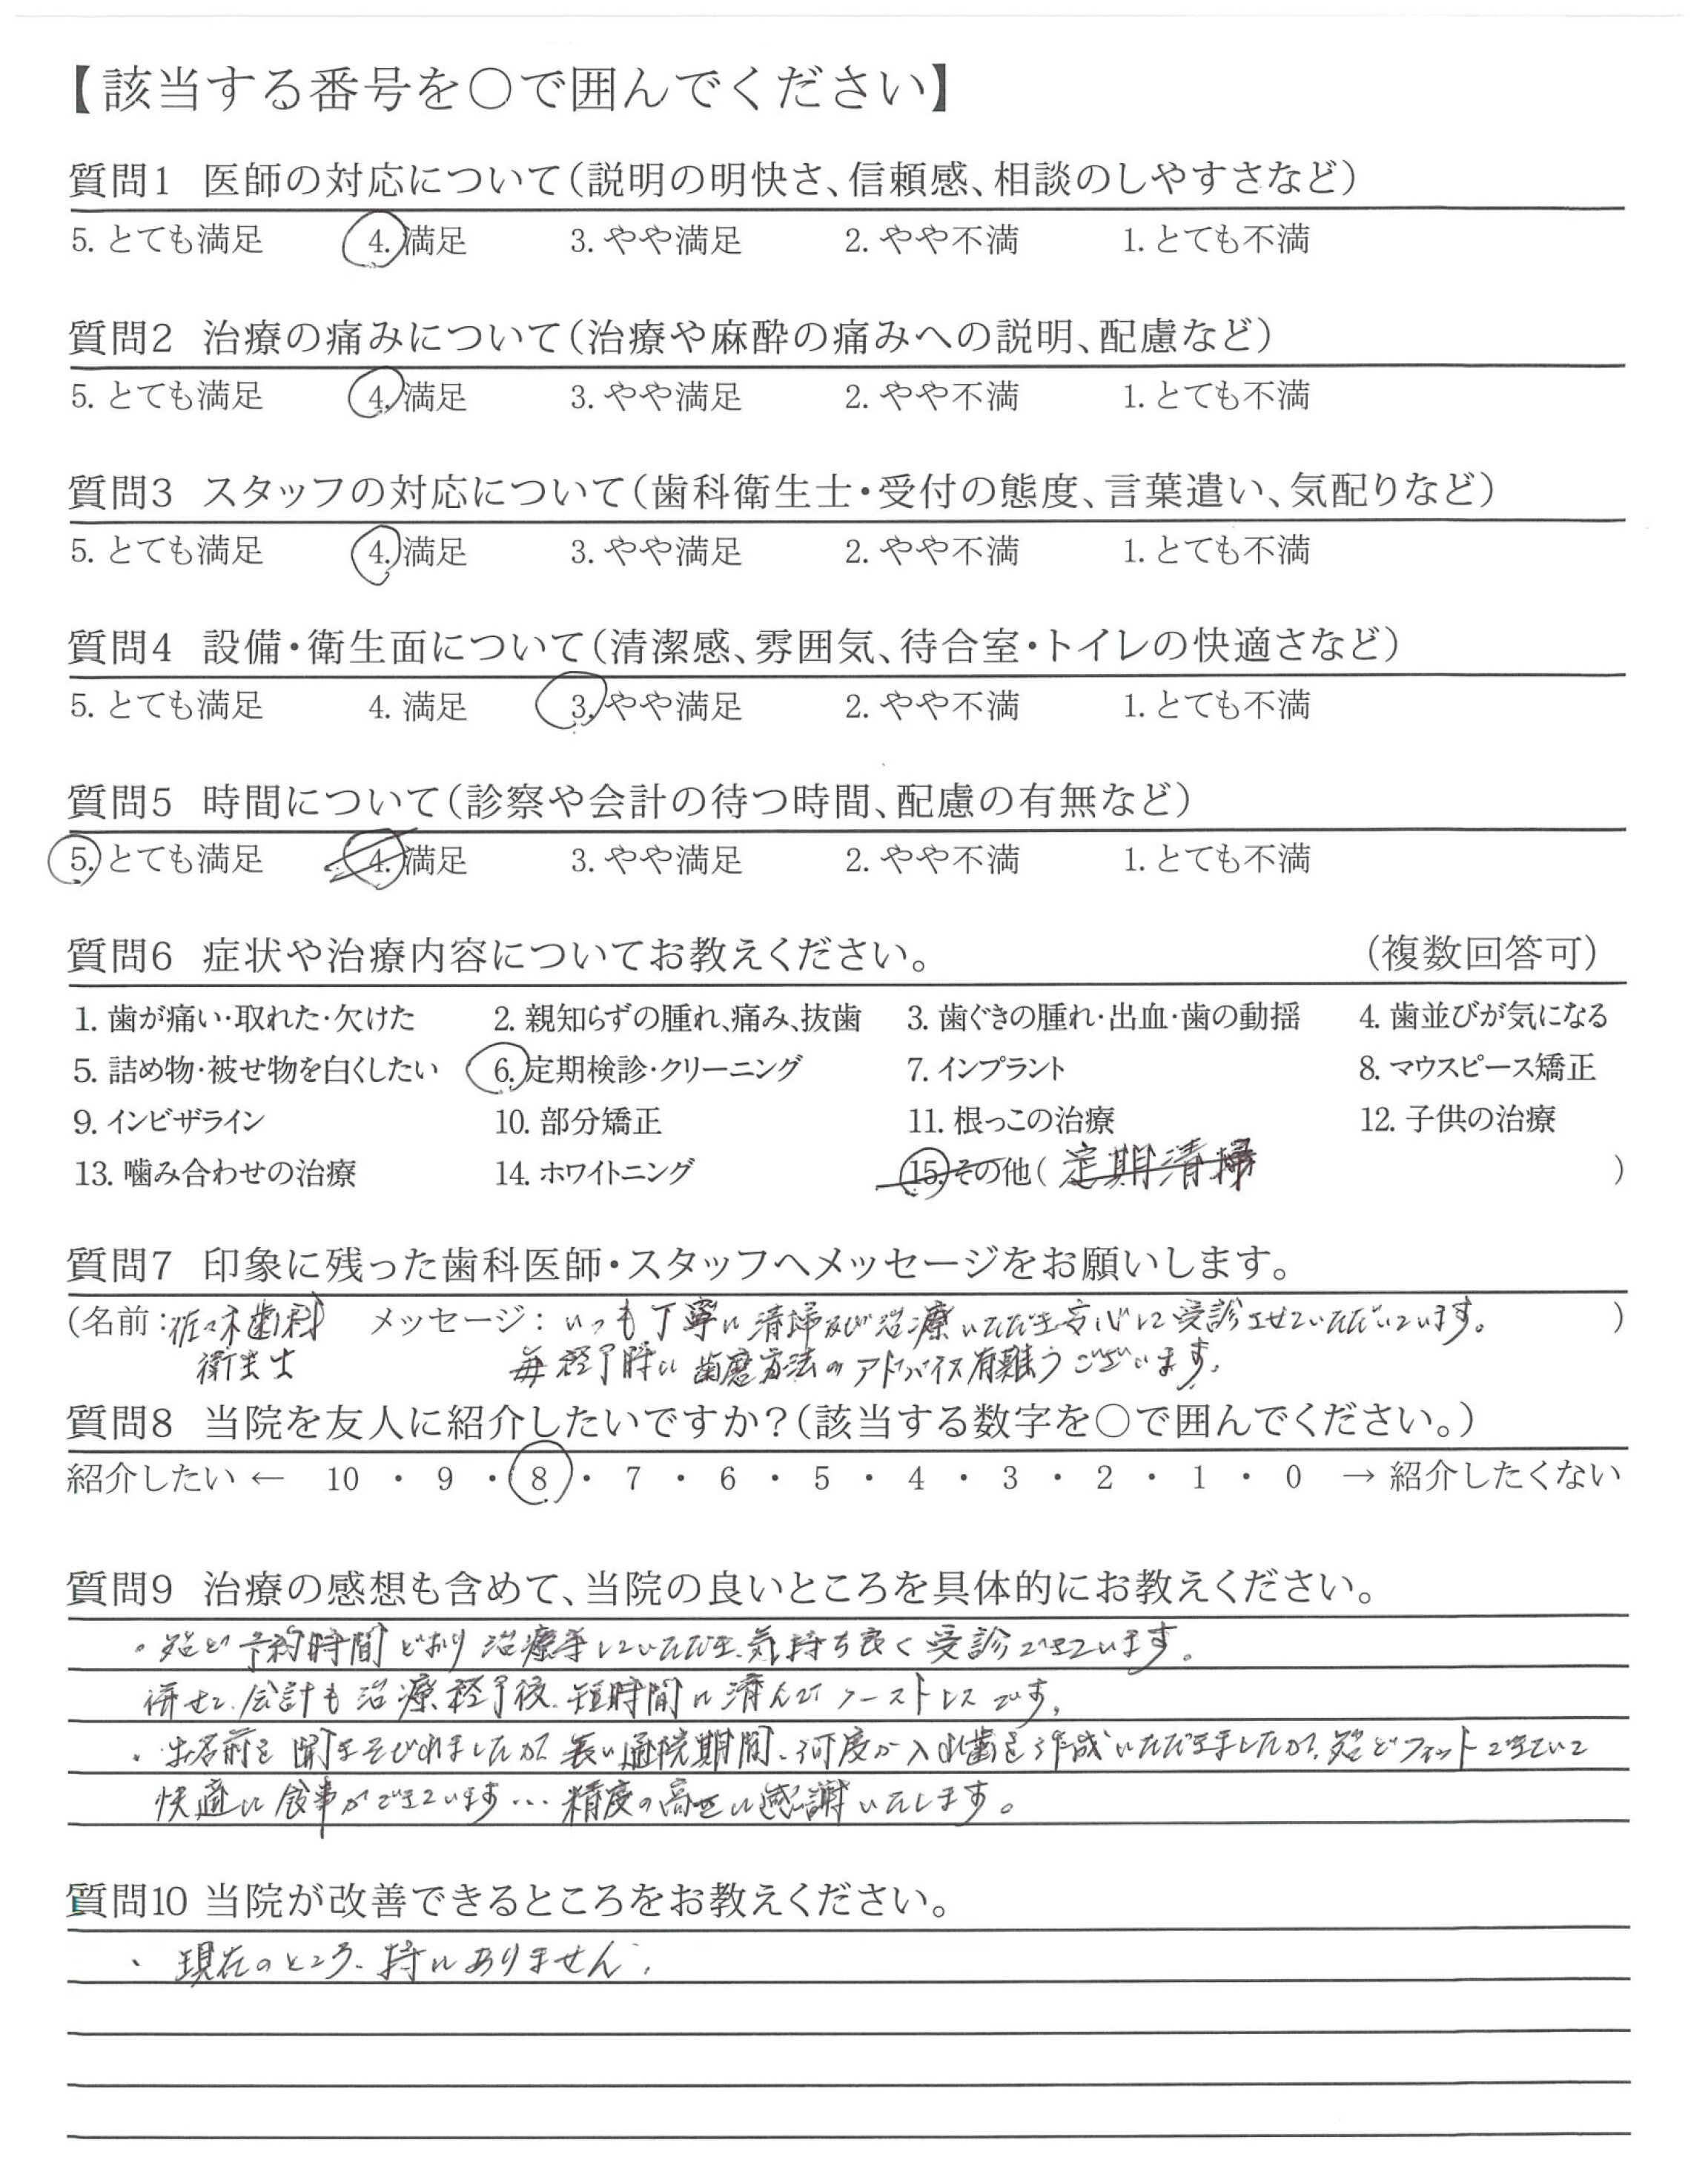 【該当する番号を○で囲んでください】
質問1 医師の対応について(説明の明快さ、信頼感、相談のしやすさなど)
5. とても満足 4. 満足 3. やや満足 2. やや不満 1. とても不満
質問2 治療の痛みについて(治療や麻酔の痛みへの説明、配慮など)
5. とても満足 4. 満足 3. やや満足 2. やや不満 1. とても不満
質問3 スタッフの対応について(歯科衛生士・受付の態度、言葉遣い、気配りなど)
5. とても満足 4. 満足 3. やや満足 2. やや不満 1. とても不満
質問4 設備・衛生面について(清潔感、雰囲気、待合室・トイレの快適さなど)
5. とても満足 4. 満足 3. やや満足 2. やや不満 1. とても不満
質問5 時間について(診察や会計の待つ時間、配慮の有無など)
5. とても満足 4. 満足 3. やや満足 2. やや不満 1. とても不満
質問6 症状や治療内容についてお教えください。 (複数回答可)
1. 歯が痛い・取れた・欠けた 2. 親知らずの腫れ、痛み、抜歯 3. 歯ぐきの腫れ・出血・歯の動揺 4. 歯並びが気になる
5. 詰め物・被せ物を白くしたい 6. 定期検診・クリーニング 7. インプラント 8. マウスピース矯正
9. インビザライン 10. 部分矯正 11. 根っこの治療 12. 子供の治療
13. 噛み合わせの治療 14. ホワイトニング 15. その他( 定期清掃 )
質問7 印象に残った歯科医師・スタッフへメッセージをお願いします。
(名前:佐々木歯科 メッセージ: いつも丁寧に清掃及び治療いただき安心して受診させていただいています。 )
衛生士 毎終了時に歯磨方法のアドバイス有難うございます。
質問8 当院を友人に紹介したいですか?(該当する数字を○で囲んでください。)
紹介したい ← 10 ・ 9 ・ 8 ・ 7 ・ 6 ・ 5 ・ 4 ・ 3 ・ 2 ・ 1 ・ 0 → 紹介したくない
質問9 治療の感想も含めて、当院の良いところを具体的にお教えください。
・殆ど予約時間どおり治療等していただき、気持ち良く受診できています。
併せて、会計も治療終了後、短時間に済んでノーストレスです。
・お名前を聞きそびれましたが長い通院期間、何度か入れ歯を作成いただきましたが、殆どフィットできていて
快適に食事ができています…精度の高さに感謝いたします。
質問10 当院が改善できるところをお教えください。
・ 現在のところ、特にありません。